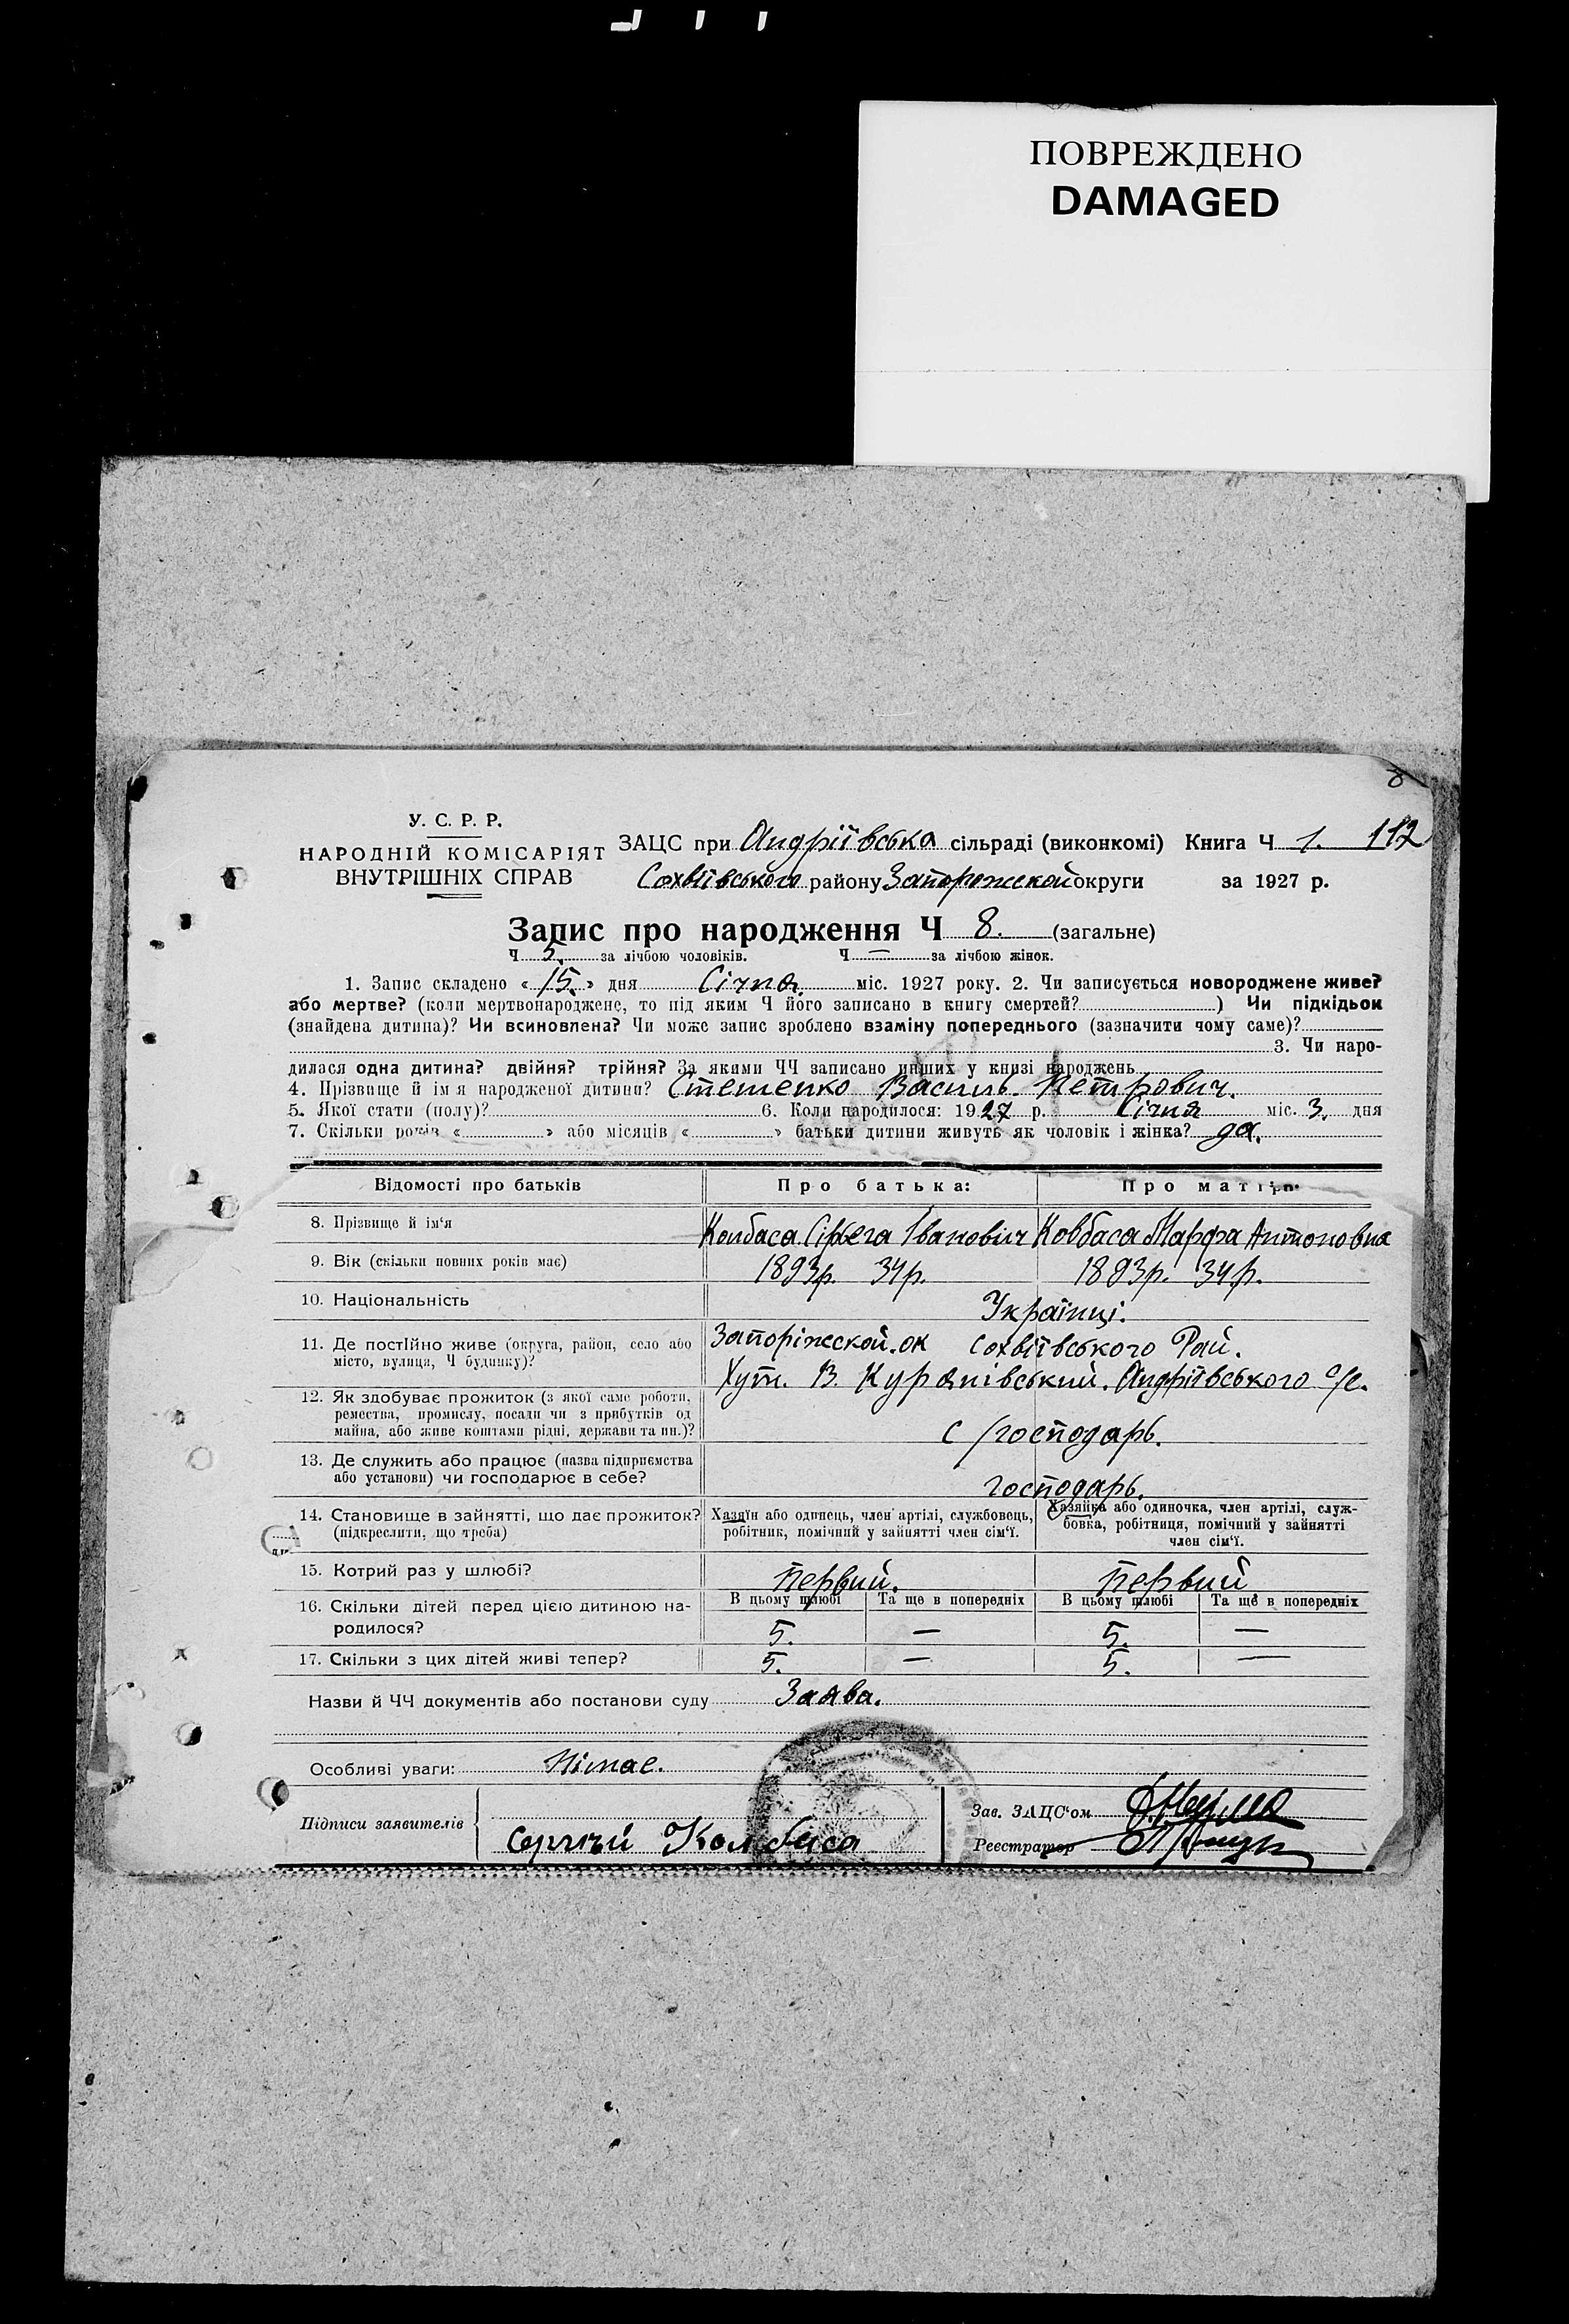 ПОВРЕЖДЕНО
DAMAGED
8
У. С. Р. Р.
НАРОДНІЙ КОМІСАРІЯТ
ВНУТРІШНІХ СПРАВ
ЗАЦС при Андріївська сільраді (виконкомі) Книга Ч 1. 112
Сохвіївського району Запорожской округи за 1927 р.
Запис про народження Ч 8. (загальне)
Ч 5. за лічбою чоловіків. Ч — за лічбою жінок.
1. Запис складено «15.» дня Січня. міс. 1927 року. 2. Чи записується новороджене живе?
або мертве? (коли мертвонароджене, то під яким Ч його записано в книгу смертей? ) Чи підкідьок
(знайдена дитина)? Чи всиновлена? Чи може запис зроблено взаміну попереднього (зазначити чому саме)?
3. Чи наро-
дилася одна дитина? двійня? трійня? За якими ЧЧ записано инших у книзі народжень
4. Прізвище й ім я народженої дитини? Стешенко Василь. Петрович.
5. Якої стати (полу)? 6. Коли народилося: 1927 р. Січня міс. 3. дня
7. Скільки років « » або місяців « » батьки дитини живуть як чоловік і жінка? да.
Відомості про батьків Про батька: Про матір:
8. Прізвище й ім‘я Колбаса Сірьега Іванович Ковбаса Марфа Антоновна
9. Вік (скільки повних років має) 1893р. 34р. 1893р. 34р.
10. Національність Українці.
11. Де постійно живе (округа, район, село або Запоріжской. ок Сохвіївського Рай.
місто, вулиця, Ч будинку)? Хут. В. Курапівський. Андріївського с/с.
12. Як здобуває прожиток (з якої саме роботи,
ремества, промислу, посади чи з прибутків од
майна, або живе коштами рідні, держави та ин.)? с/господарь.
13. Де служить або працює (назва підприємства
або установи) чи господарює в себе? господарь.
14. Становище в зайнятті, що дає прожиток? Хазяїн або одинець, член артілі, службовець, Хазяйка або одиночка, член артілі, служ-
(підкреслити, що треба) робітник, помічний у зайнятті член сім‘ї. бовка, робітниця, помічний у зайнятті
член сім‘ї.
15. Котрий раз у шлюбі? первий. первий
16. Скільки дітей перед цією дитиною на- В цьому шлюбі Та ще в попередніх В цьому шлюбі Та ще в попередніх
родилося? 5. — 5. —
17. Скільки з цих дітей живі тепер? 5. — 5. —
Назви й ЧЧ документів або постанови суду Заява.
Особливі уваги: Німае.
Зав. ЗАЦС‘ом
Підписи заявителів Сергѣй Колбаса Реестратор